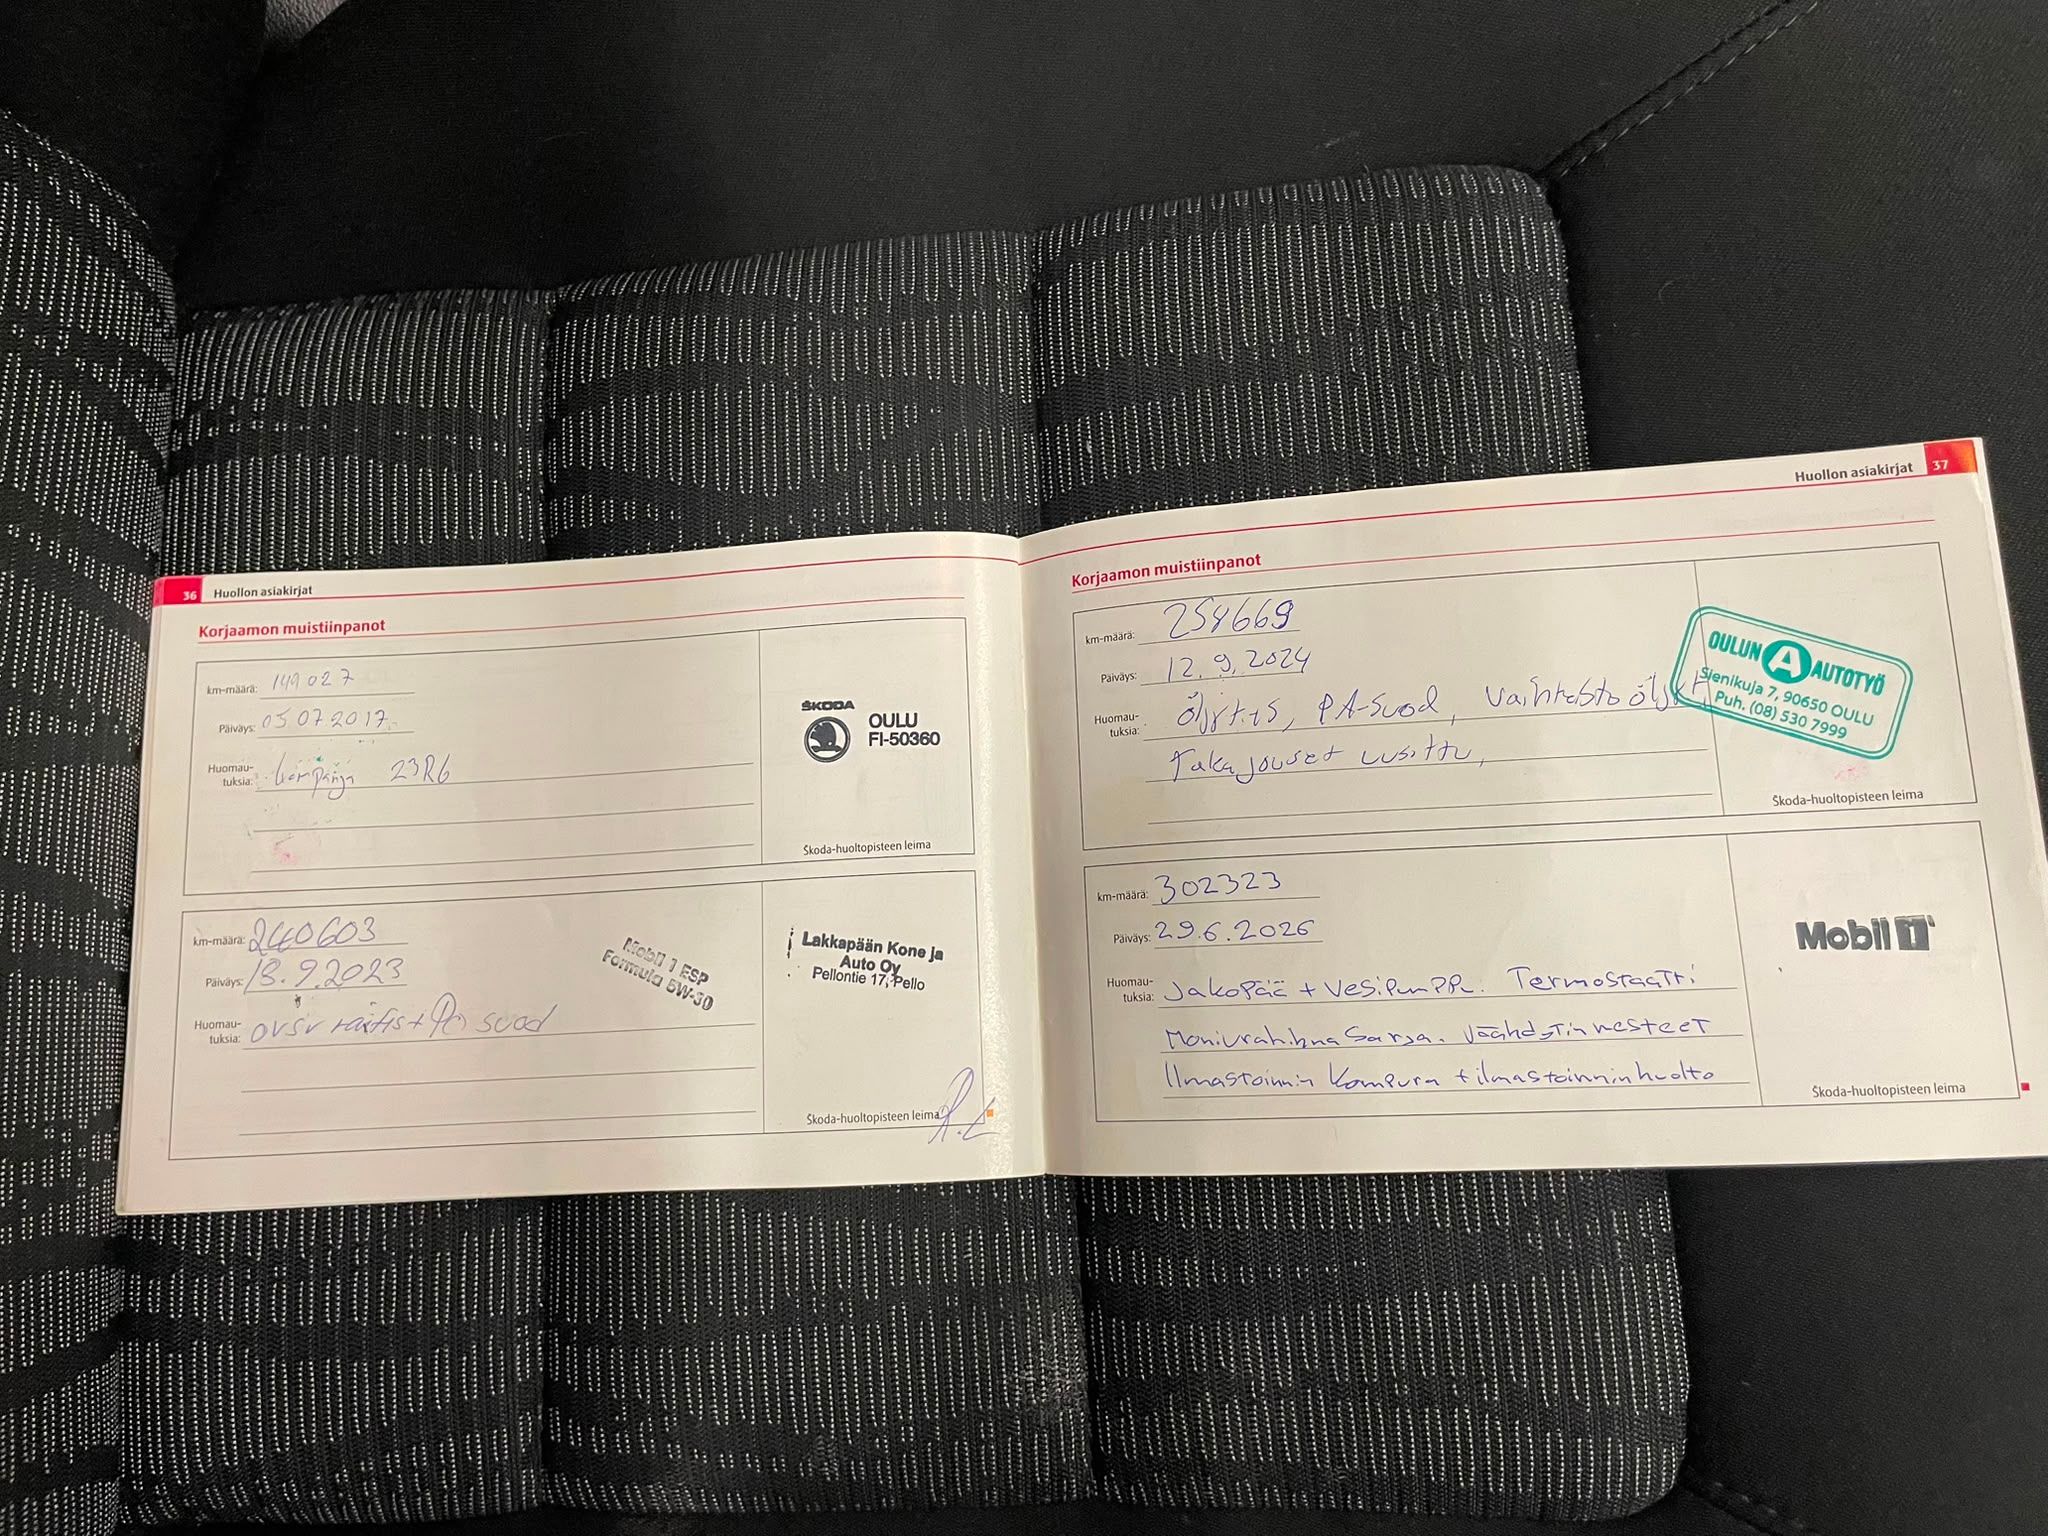 36 Huollon asiakirjat
Korjaamon muistiinpanot
km-määrä: 149027
Päiväys: 05.07.2017.
Huomau-
tuksia: kampanja 23R6
ŠKODA
OULU
FI-50360
Škoda-huoltopisteen leima
km-määrä: 240603
Päiväys: 18.9.2023
Huomau-
tuksia: suod
Mobil 1 ESP
Formula 5W-30
Lakkapään Kone ja
Auto Oy
Pellontie 17, Pello
Škoda-huoltopisteen leima
Huollon asiakirjat 37
Korjaamon muistiinpanot
km-määrä: 254669
Päiväys: 12.9.2024
Huomau-
tuksia: Öljyt+S, PA-Suod, Vaihteistoöljyt
Takajouset uusittu,
OULUN A AUTOTYÖ
Sienikuja 7, 90650 OULU
Puh. (08) 530 7999
Škoda-huoltopisteen leima
km-määrä: 302323
Päiväys: 29.6.2026
Huomau-
tuksia: Jakopää + Vesipumppu. Termostaatti
Moniurahihna Sarja. Jäähdytinnesteet
Ilmastoinnin Kompura + ilmastoinninhuolto
Mobil 1
Škoda-huoltopisteen leima